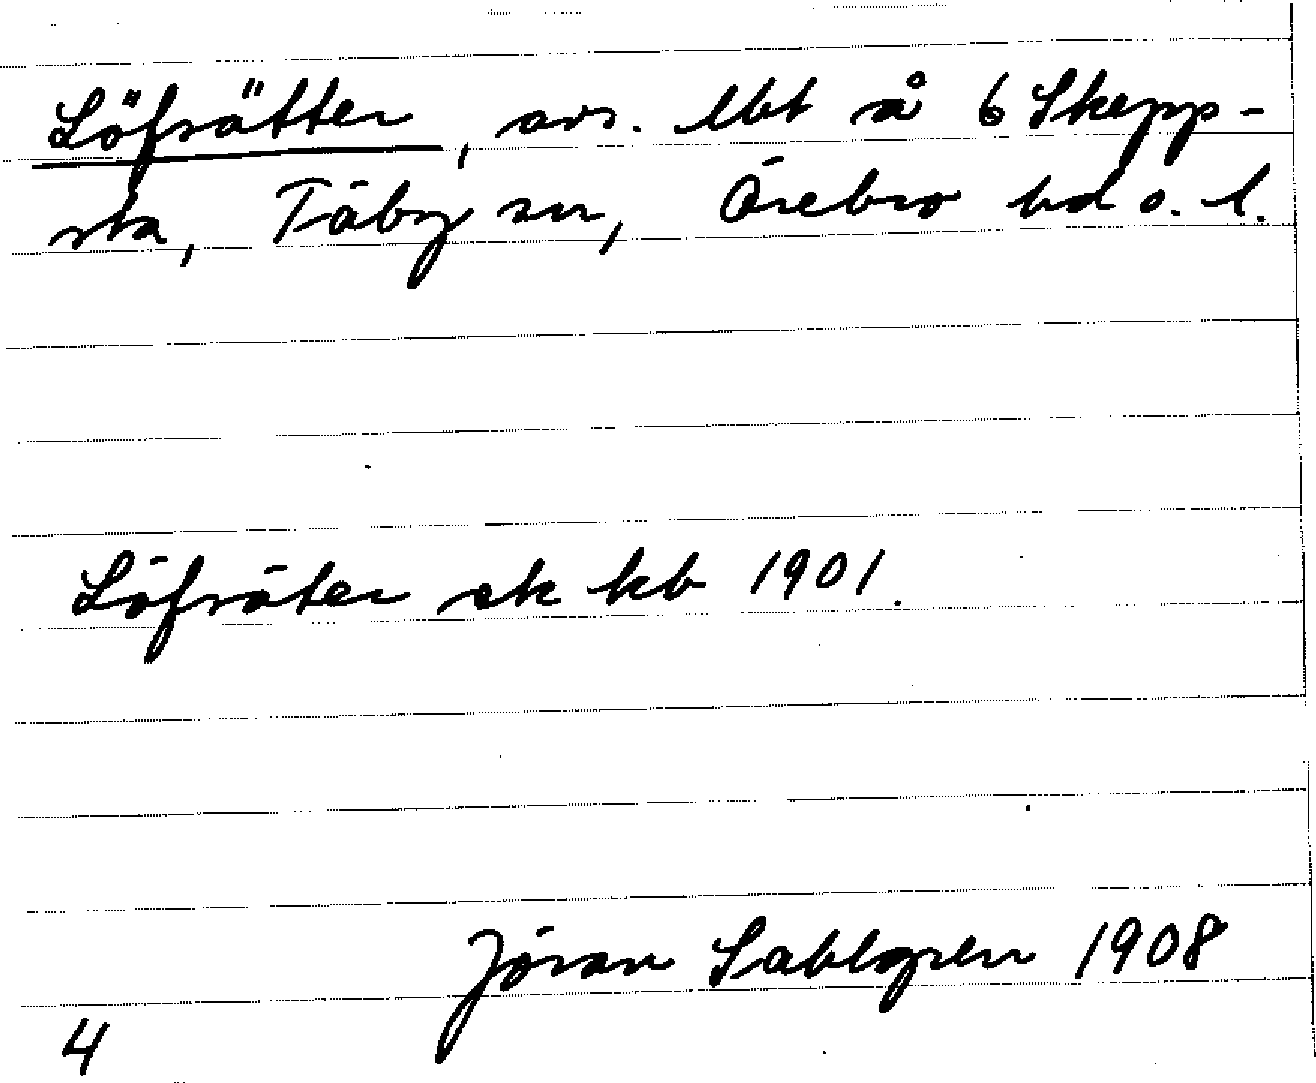 Löfrätter, avs. lht å 6 Skepp-
sta, Täby sn, Örebro hd o. l.
Löfräter ek kb 1901.
Jöran Sahlgren 1908
4